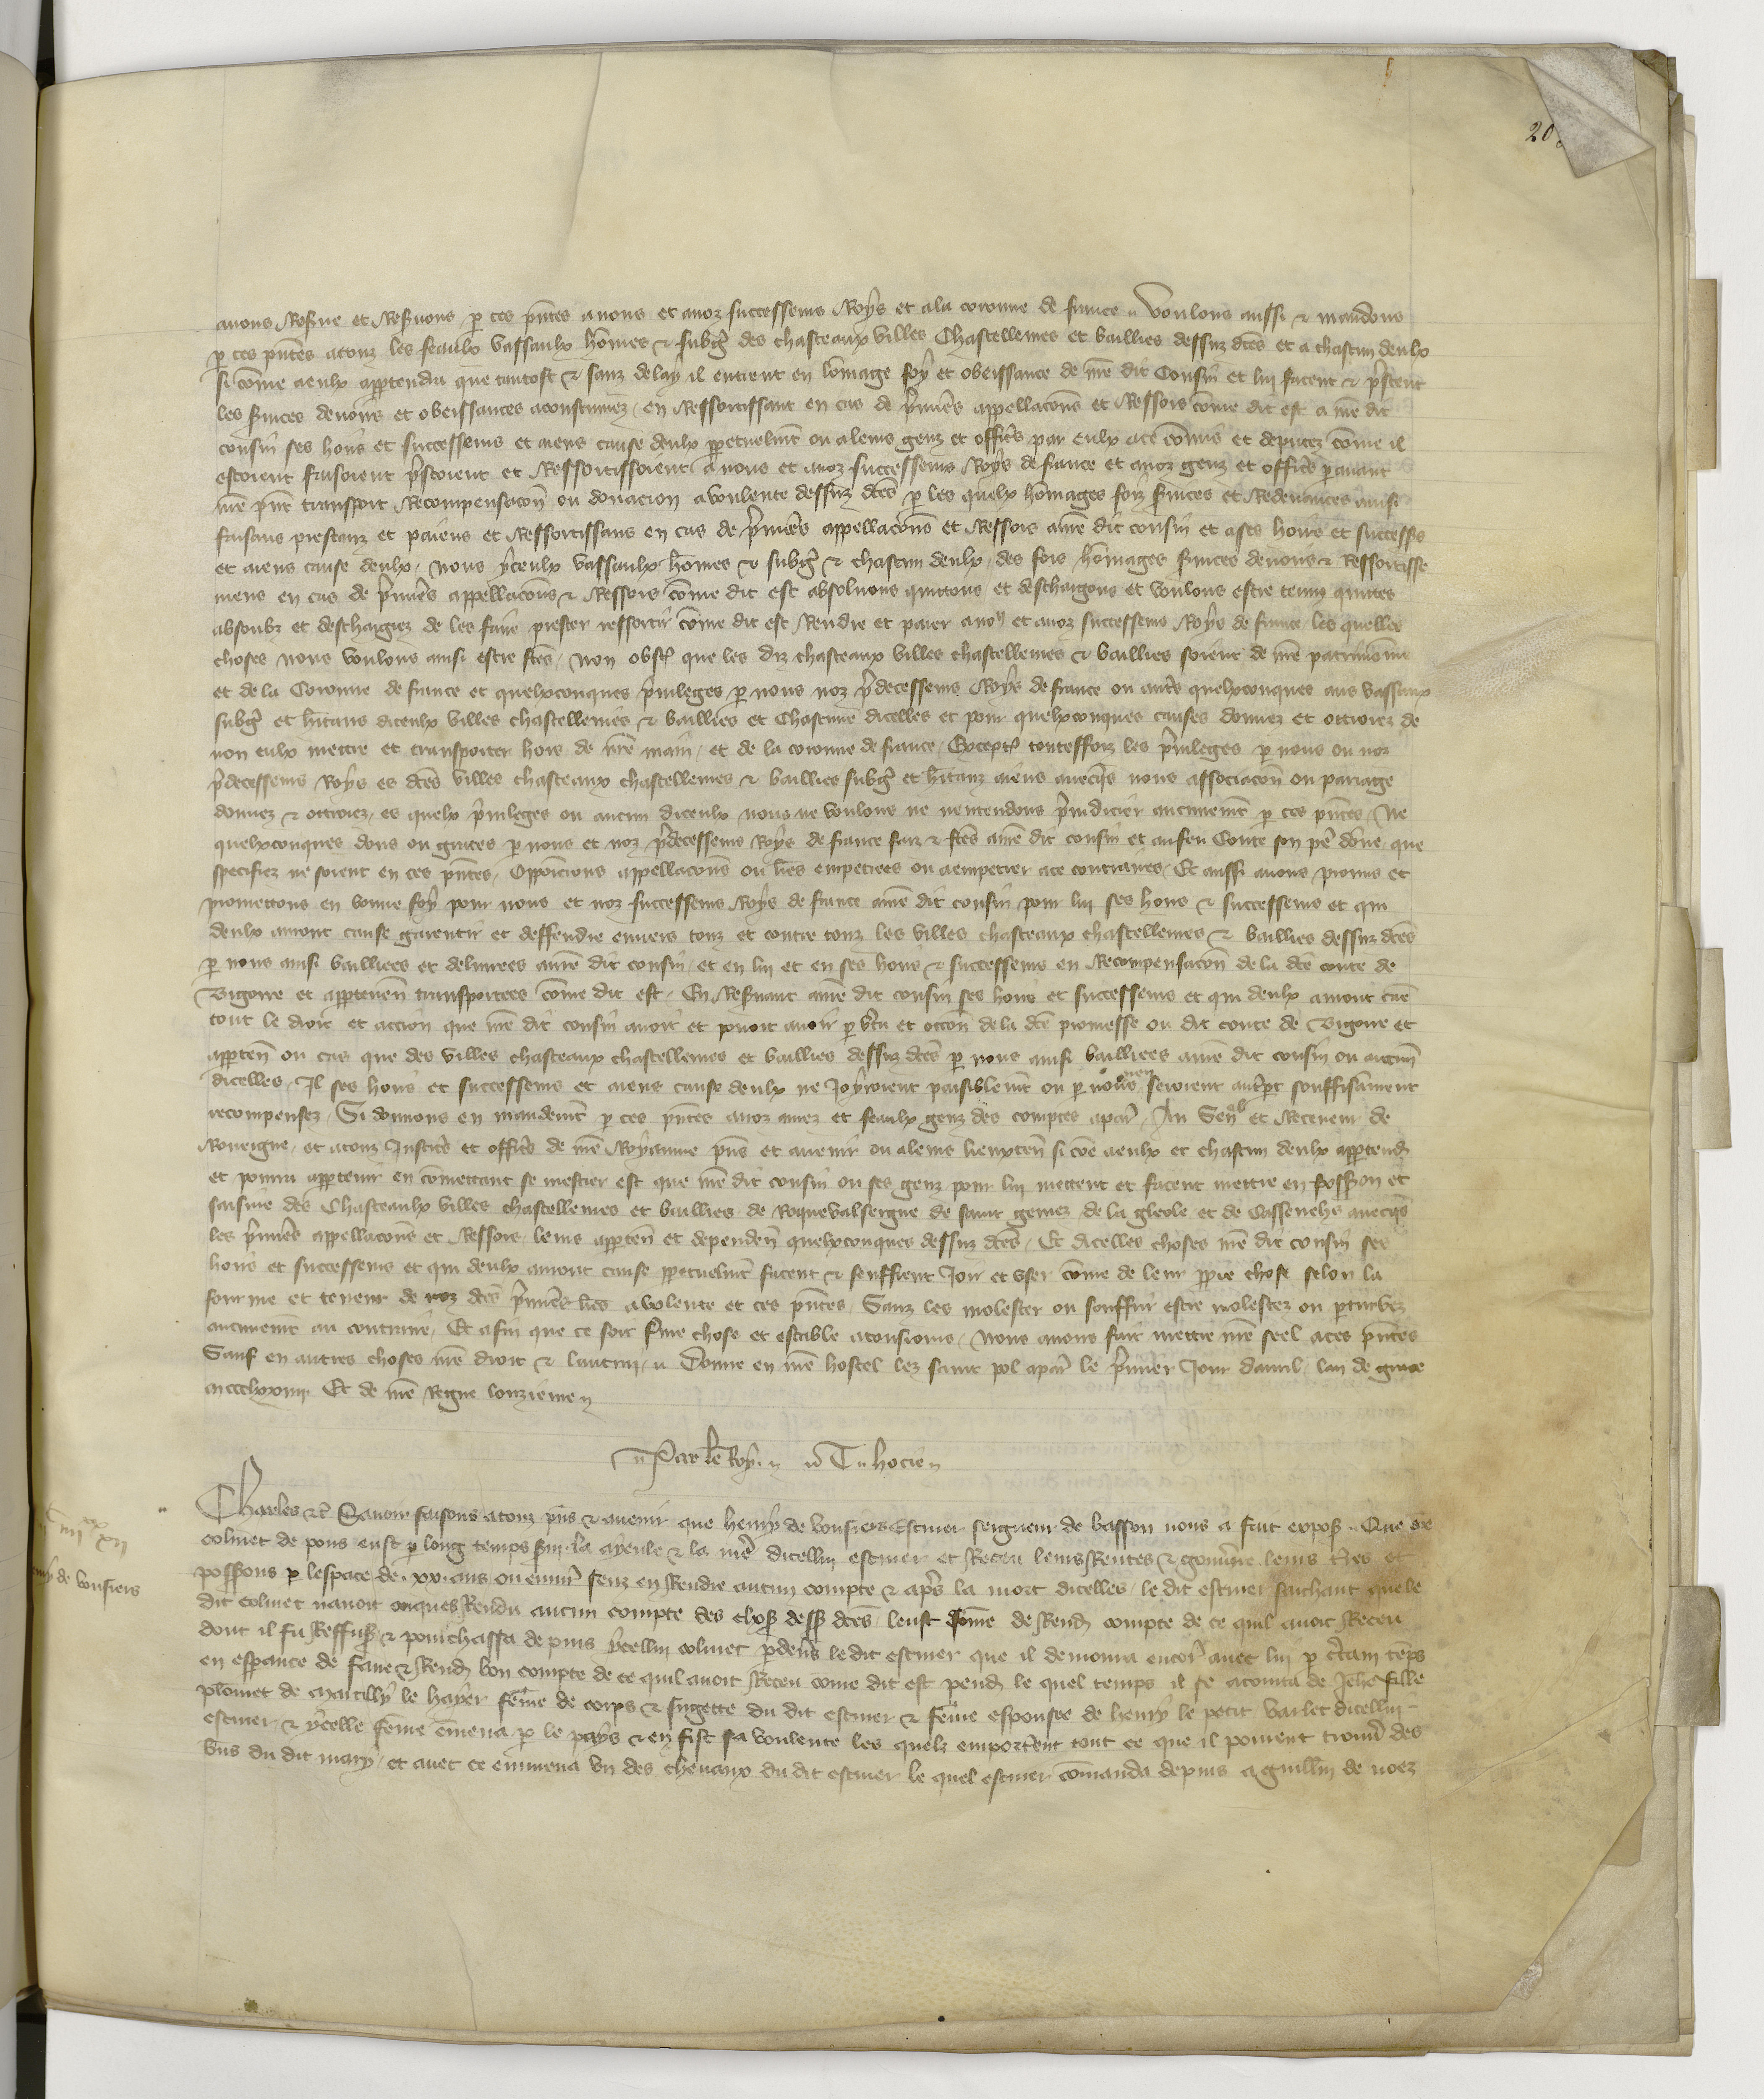 20
avons Reserve et Reservons p ces pntes a nous et a noz successeurs Roys et ala coronne de france Voulons aussi & mandons
p ces pntes atouz les feaulx vassaulx hommes & subgez des chasteaux villes Chastellenies et baillies dessuz dces et a chascun deulx
si come a eulx apptendra que tantost & sanz delay il entrent en lomage foy et obeissance de nre dit Cousin et lui facent & prestent
les services devoirs et obeissances acoustumez en Ressortissant en cas de premieres appellacons et Ressors come dit est a nre dit
cousin ses hoirs et successeurs et aiens cause deulx ppetuelmt ou aleurs genz et officrs par eulx ace comis et deputez come il
estoient faisoient prestoient et Ressortissoient a nous et anoz successeurs Roys de france et anoz genz et officrs pavant
nre pnt transport Recompensacon ou donacion a voulente dessuz dces p les quelx homages foiz services et Redevances ainsi
faisans prestanz et paiens et Ressortissans en cas de premieres appellacons et Ressors anre dit cousin et ases hoirs et successrs
et aiens cause deulx, nous yceulx vassaulx homes & subgez & chascun deulx, des fois homages services devoirs & Ressortisse
mens en cas de premieres appellacons & Ressors come dit est absoluons quittons et deschargons et voulons estre tenuz quittes
absoulz et deschargiez de les faire prester ressortir come dit est Rendre et paier a nous et anoz successeurs Roys de france, les quelles
choses nous voulons ainsi estre fces, non obst que les diz chasteaux villes chastellenies & baillies soient de nre patrimoine
et de la Coronne de france et quelxconques privileges p nous noz predecesseurs Roys de france ou autrs quelxconques aus vassaux
subgez et hitans diceulx villes chastellenies & baillies et Chascune dicelles et pour quelxconques causes donnez et ottroiez de
non eulx mettre et transporter hors de nre main, et de la coronne de france, Excepte toutesfoiz les privileges p nous ou noz
predecesseurs Roys es dces villes chasteaux chastellenies & baillies subgez et hitanz aiens avecqs nous associacon ou pariage
donnez & ottroiez, es quelx privileges ou aucun diceulx nous ne voulons ne nentendons preiudicier aucunemt p ces pntes, Ne
quelxconques dons ou graces p nous et noz predecesseurs Roys de france faiz & fces anre dit cousin et aufeu Conte son pere done que
specifiez ne soient en ces pntes, Opposicions appellacons ou lres empetrees ou aempetrer ace contraires, Et aussi avons promis et
promettons en bonne foy pour nous et noz successeurs Roys de france anre dit cousin pour lui ses hoirs & successeurs et qui
deulx auront cause garentir et deffendre envers touz et contre touz les villes chasteaux chastellenies & baillies dessuz dces
p nous ainsi baillees et delivrees anre dit cousin, et en lui et en ses hoirs & successeurs en Recompensacon de la dce conte de
Bigorre et appartenen transportees come dit est, En Reservant anre dit cousin ses hoirs et successeurs et qui deulx auront cae
tout le droit et accion que nre dit cousin avoit et povoit avoir p vtu et occon de la dce promesse ou dit conte de Bigorre et
apptenn ou cas que des villes chasteaux chastellenies et baillies dessuz dces p nous ainsi baillees anre dit cousin ou aucun
dicelles, Il ses hoirs et successeurs et aiens cause deulx ne Joyroient paisiblemt ou p nous nen seroient autrpt souffisament
recompensez, Si donnons en mandemt p ces pntes anoz amez et feaulx genz des comptes apar, Au Senl et Receveur de
Rouergue, et atouz Justicrs et officrs de nre Royaume pns et avenir ou aleurs lieuxten si coe aeulx et chascun deulx apptendr
et pourra apptenir en comettant se mestier est que nre dit cousin ou ses genz pour lui mettent et facent mettre en possession et
saisine des Chasteaulx villes chastellenies et baillies de Roquevalsergue de saint geniez de la gleole et de Cassenehes avecqs
les premieres appellacons et Ressors leurs apptenn et dependen quelxconques dessuz dces, Et dicelles choses nre dit cousin ses
hoirs et successeurs et qui deulx auront cause ppetuelmt facent & seuffrent Joir et user come de leur ppre chose selon la
fourme et teneur de noz dces premieres lres a volente et ces pntes, Sanz les molester ou souffrir estre molestez ou pturbez
aucunemt au contraire, Et afin que ce soit ferme chose et estable atousiours, Nous avons fait mettre nre seel aces pntes
Sauf en autres choses nre droit & lautrui, Donne en nre hostel lez saint pol apar le premier Jour davril, lan de grace
mccclxxiiii Et de nre Regne lonzieme
Par le Roy T hocie
Charles &c Savoir faisons atouz pns & avenir que henry de Vousiers Escuier seigneur de basson nous a fait exposer Que ce
colinet de pons eust p long temps servi la ayeule & la mere dicellui escuier et Receu leurs Rentes & gouverne leurs terres et
possessions p lespace de xx ans ou environ senz en Rendre aucun compte & apres la mort dicelles, le dit escuier saichant que le
dit colinet navoit onques Rendu aucun compte des choses dessus dces leust some de Rendre compte de ce quil avoit Receu
dont il fu Reffusant & pourchassa depuis ycellui colinet pdevers le dit escuier que il demoura encore avec lui p certain temps
en esperance de faire & Rendre bon compte de ce quil avoit Receu come dit est pendant le quel temps il se acointa de Jehe fille
plomet de marcilly le hayer feme de corps & sugette du dit escuier & feme espousee de henry le petit varlet dicellui
escuier & ycelle feme enmena p le pays & en fist sa voulente les quelz emporterent tout ce que il porent trouver des
biens du dit mary, et avec ce enmena un des chevaux du dit escuier le quel escuier comanda depuis a guillin de noez
iiii xx xii
de vousiers